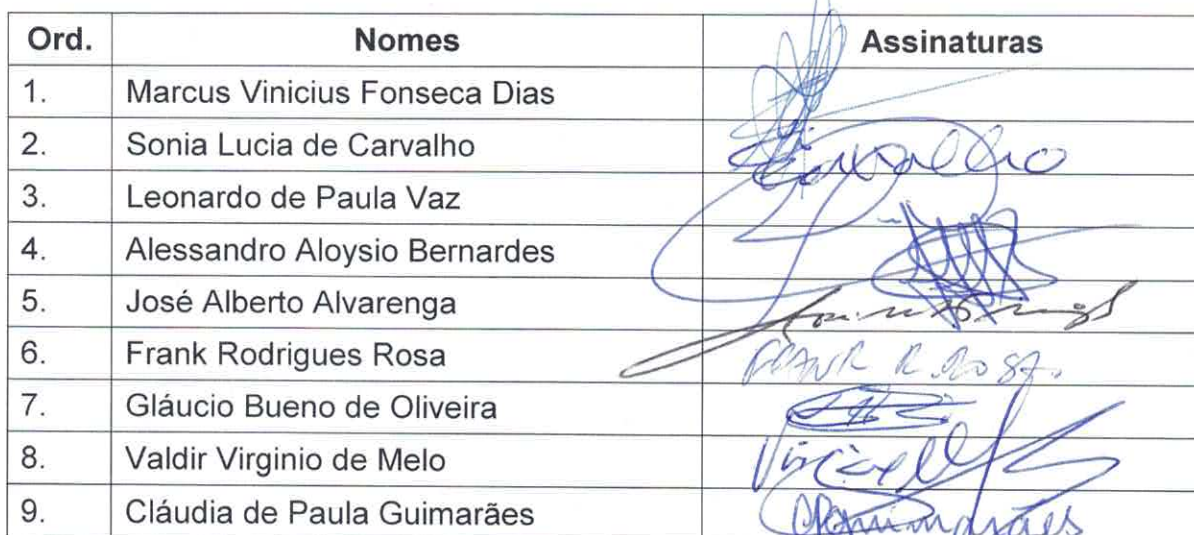 Ord. Nomes Assinaturas
1. Marcus Vinicius Fonseca Dias
2. Sonia Lucia de Carvalho Carvalho
3. Leonardo de Paula Vaz
4. Alessandro Aloysio Bernardes
5. José Alberto Alvarenga
6. Frank Rodrigues Rosa FRANK R. ROSA.
7. Gláucio Bueno de Oliveira
8. Valdir Virginio de Melo
9. Cláudia de Paula Guimarães